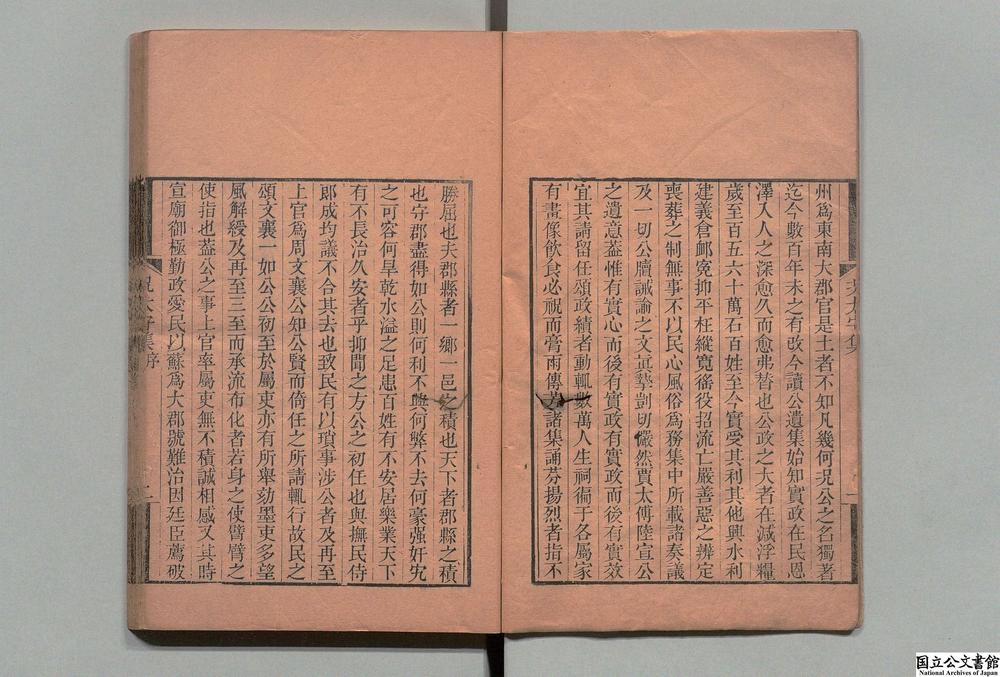 州爲東南大郡官是土者不知凡幾何况公之名獨著
迄今數百年未之有改今讀公遺集始知實政在民恩
澤入人之深愈久而愈弗替也公政之大者在減浮糧
歲至百五六十萬石百姓至今實受其利其他興水利
建義倉䘏寃抑平枉縱寬徭役招流亡嚴善惡之辨定
喪葬之制無事不以民心風俗爲務集中所載諸奏議
及一切公牘誡諭之文眞摯剴切儼然賈太傅陸宣公
之遺意葢惟有實心而後有實政有實政而後有實效
宜其請留任頌政績者動輒數萬人生祠徧于各屬家
有畫像飲食必祝而膏雨傳諸集誦芬揚烈者指不
况太守集
一
勝屈也夫郡縣者一鄉一邑之積也天下者郡縣之積
也守郡盡得如公則何利不興何弊不去何豪强奸宄
之可容何旱乾水溢之足患百姓有不安居樂業天下
有不長治久安者乎抑聞之方公之初任也與撫民侍
郎成均議不合其去也致民有以瑣事涉公者及再至
上官爲周文襄公知公賢而倚任之所請輒行故民之
頌文襄一如公公初至於屬吏亦有所舉劾墨吏多望
風解綬及再至三至而承流布化者若身之使臂臂之
使指也葢公之事上官率屬吏無不積誠相感又其時
宣廟御極勤政愛民以蘇爲大郡號難治因廷臣薦破
况太守集
序
二
国立公文書館
National Archives of Japan